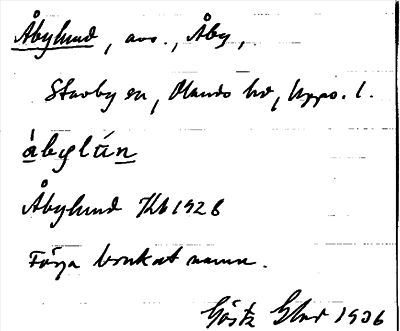 Åbylund, avs., Åby,
Stavby sn, Olands hd, Upps. l.
åbylun
Åbylund Hkb 1928
Föga brukat namn.
Gösta 1936